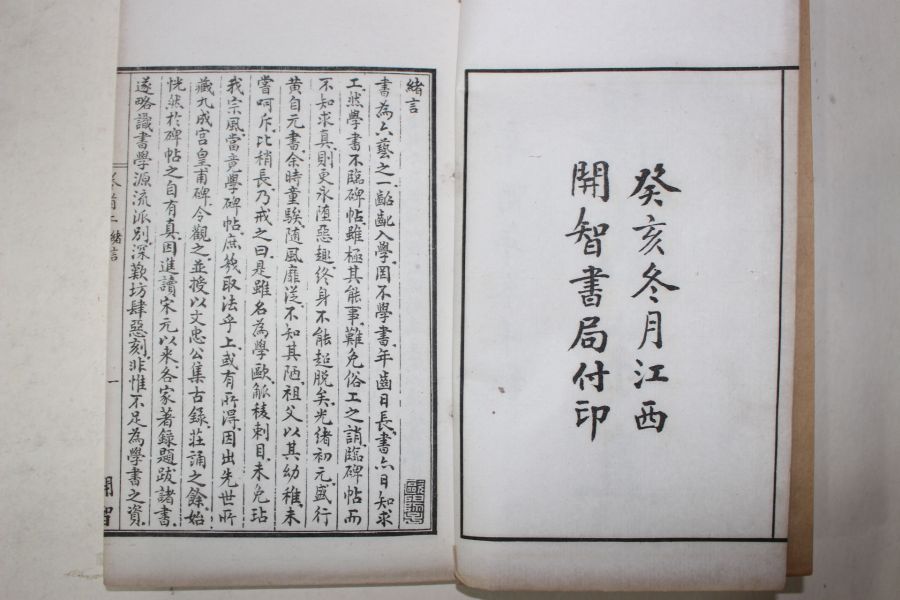 癸亥冬月江西
開智書局付印
緒言
書為六藝之一齠齔入學罔不學書年齒日長書六日知求
工然學書不臨碑帖雖極其能事難免俗工之誚臨碑帖而
不知求真則更永墮惡趣終身不能超脫矣光緒初元盛行
黄自元書余時童騃隨風靡從不知其陋祖父以其幼稚未
嘗呵斥比稍長乃戒之曰是雖名為學歐觚稜刺目未免玷
我宗風當竟學碑帖庶幾取法乎上或有所得因出先世所
藏九成宫皇甫碑令觀之並授以文忠公集古録莊誦之餘始
恍然於碑帖之自有真因進讀宋元以来各家著録題跋諸書
遂略識書學源流派別深歎坊肆惡刻非惟不足為學書之資
卷首二 緒言
一
開智